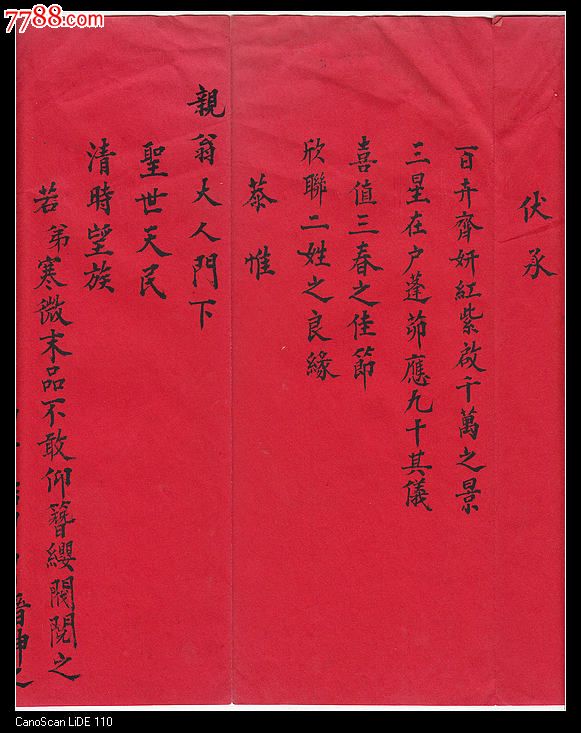 7788.com
伏承
百卉齊妍紅紫啟千萬之景
三星在户蓬茆應九十其儀
喜值三春之佳節
欣聯二姓之良緣
恭惟
親翁大人門下
聖世天民
清時望族
若弟寒微末品不敢仰簪纓閥閱之
CanoScan LiDE 110